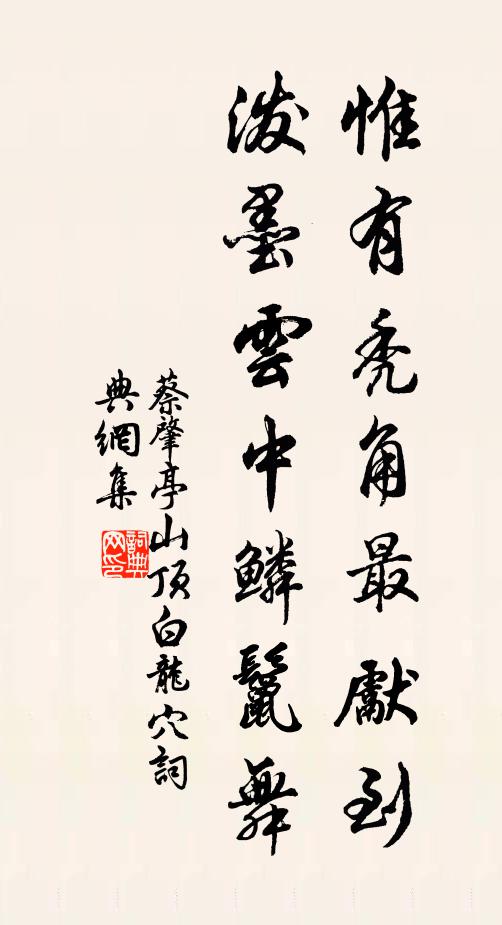 惟有禿角最獻到
潑墨雲中鱗鬣舞
蔡肇亭山頂白龍穴詞
典網集
詞典網印